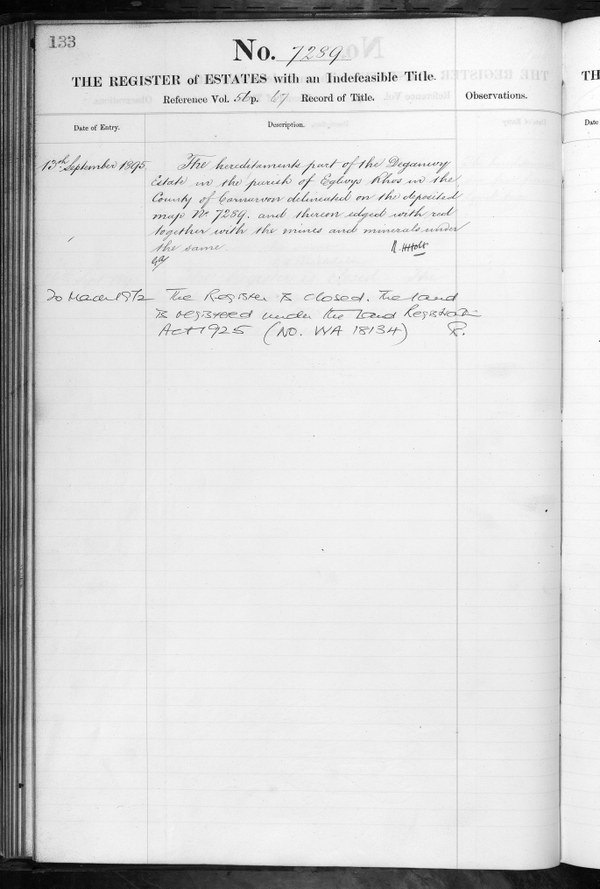 133
No. 7289
THE REGISTER of ESTATES with an Indefeasible Title.
Reference Vol. 56 p. 67 Record of Title.
Observations.
Date of Entry.
Description.
13th September 1895
The hereditaments part of the Deganwy
Estate in the parish of Eglwys Rhos in the
County of Carnarvon delineated on the deposited
map No 7289. and thereon edged with red
together with the mines and minerals under
the same
R. Holt
20 March 1972 The Register is closed. The land
is registered under the Land Registration
Act 1925 (NO. WA 18134) R.
TH
Date